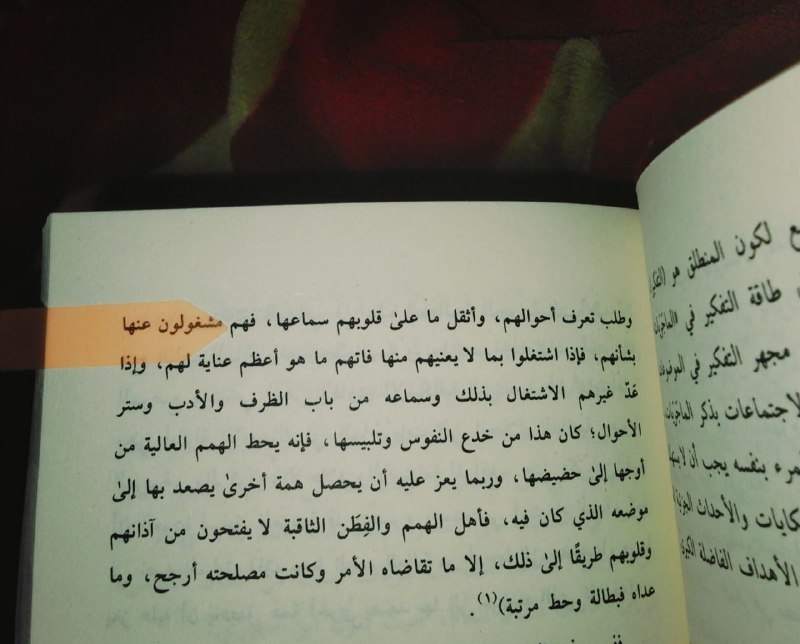 وطلب تعرف أحوالهم، وأثقل ما علىٰ قلوبهم سماعها، فهم مشغولون عنها
بشأنهم، فإذا اشتغلوا بما لا يعنيهم منها فاتهم ما هو أعظم عناية لهم، وإذا
عَدّ غيرهم الاشتغال بذلك وسماعه من باب الظرف والأدب وستر
الأحوال؛ كان هذا من خدع النفوس وتلبيسها، فإنه يحط الهمم العالية من
أوجها إلىٰ حضيضها، وربما يعز عليه أن يحصل همة أخرىٰ يصعد بها إلىٰ
موضعه الذي كان فيه، فأهل الهمم والفِطَن الثاقبة لا يفتحون من آذانهم
وقلوبهم طريقًا إلىٰ ذلك، إلا ما تقاضاه الأمر وكانت مصلحته أرجح، وما
عداه فبطالة وحط مرتبة)(١).
لكون المنطلق هو
طاقة التفكير في
مجهر التفكير في
الاجتماعات بذكر
بنفسه يجب أن لا
والأحداث
الأهداف الفاضلة